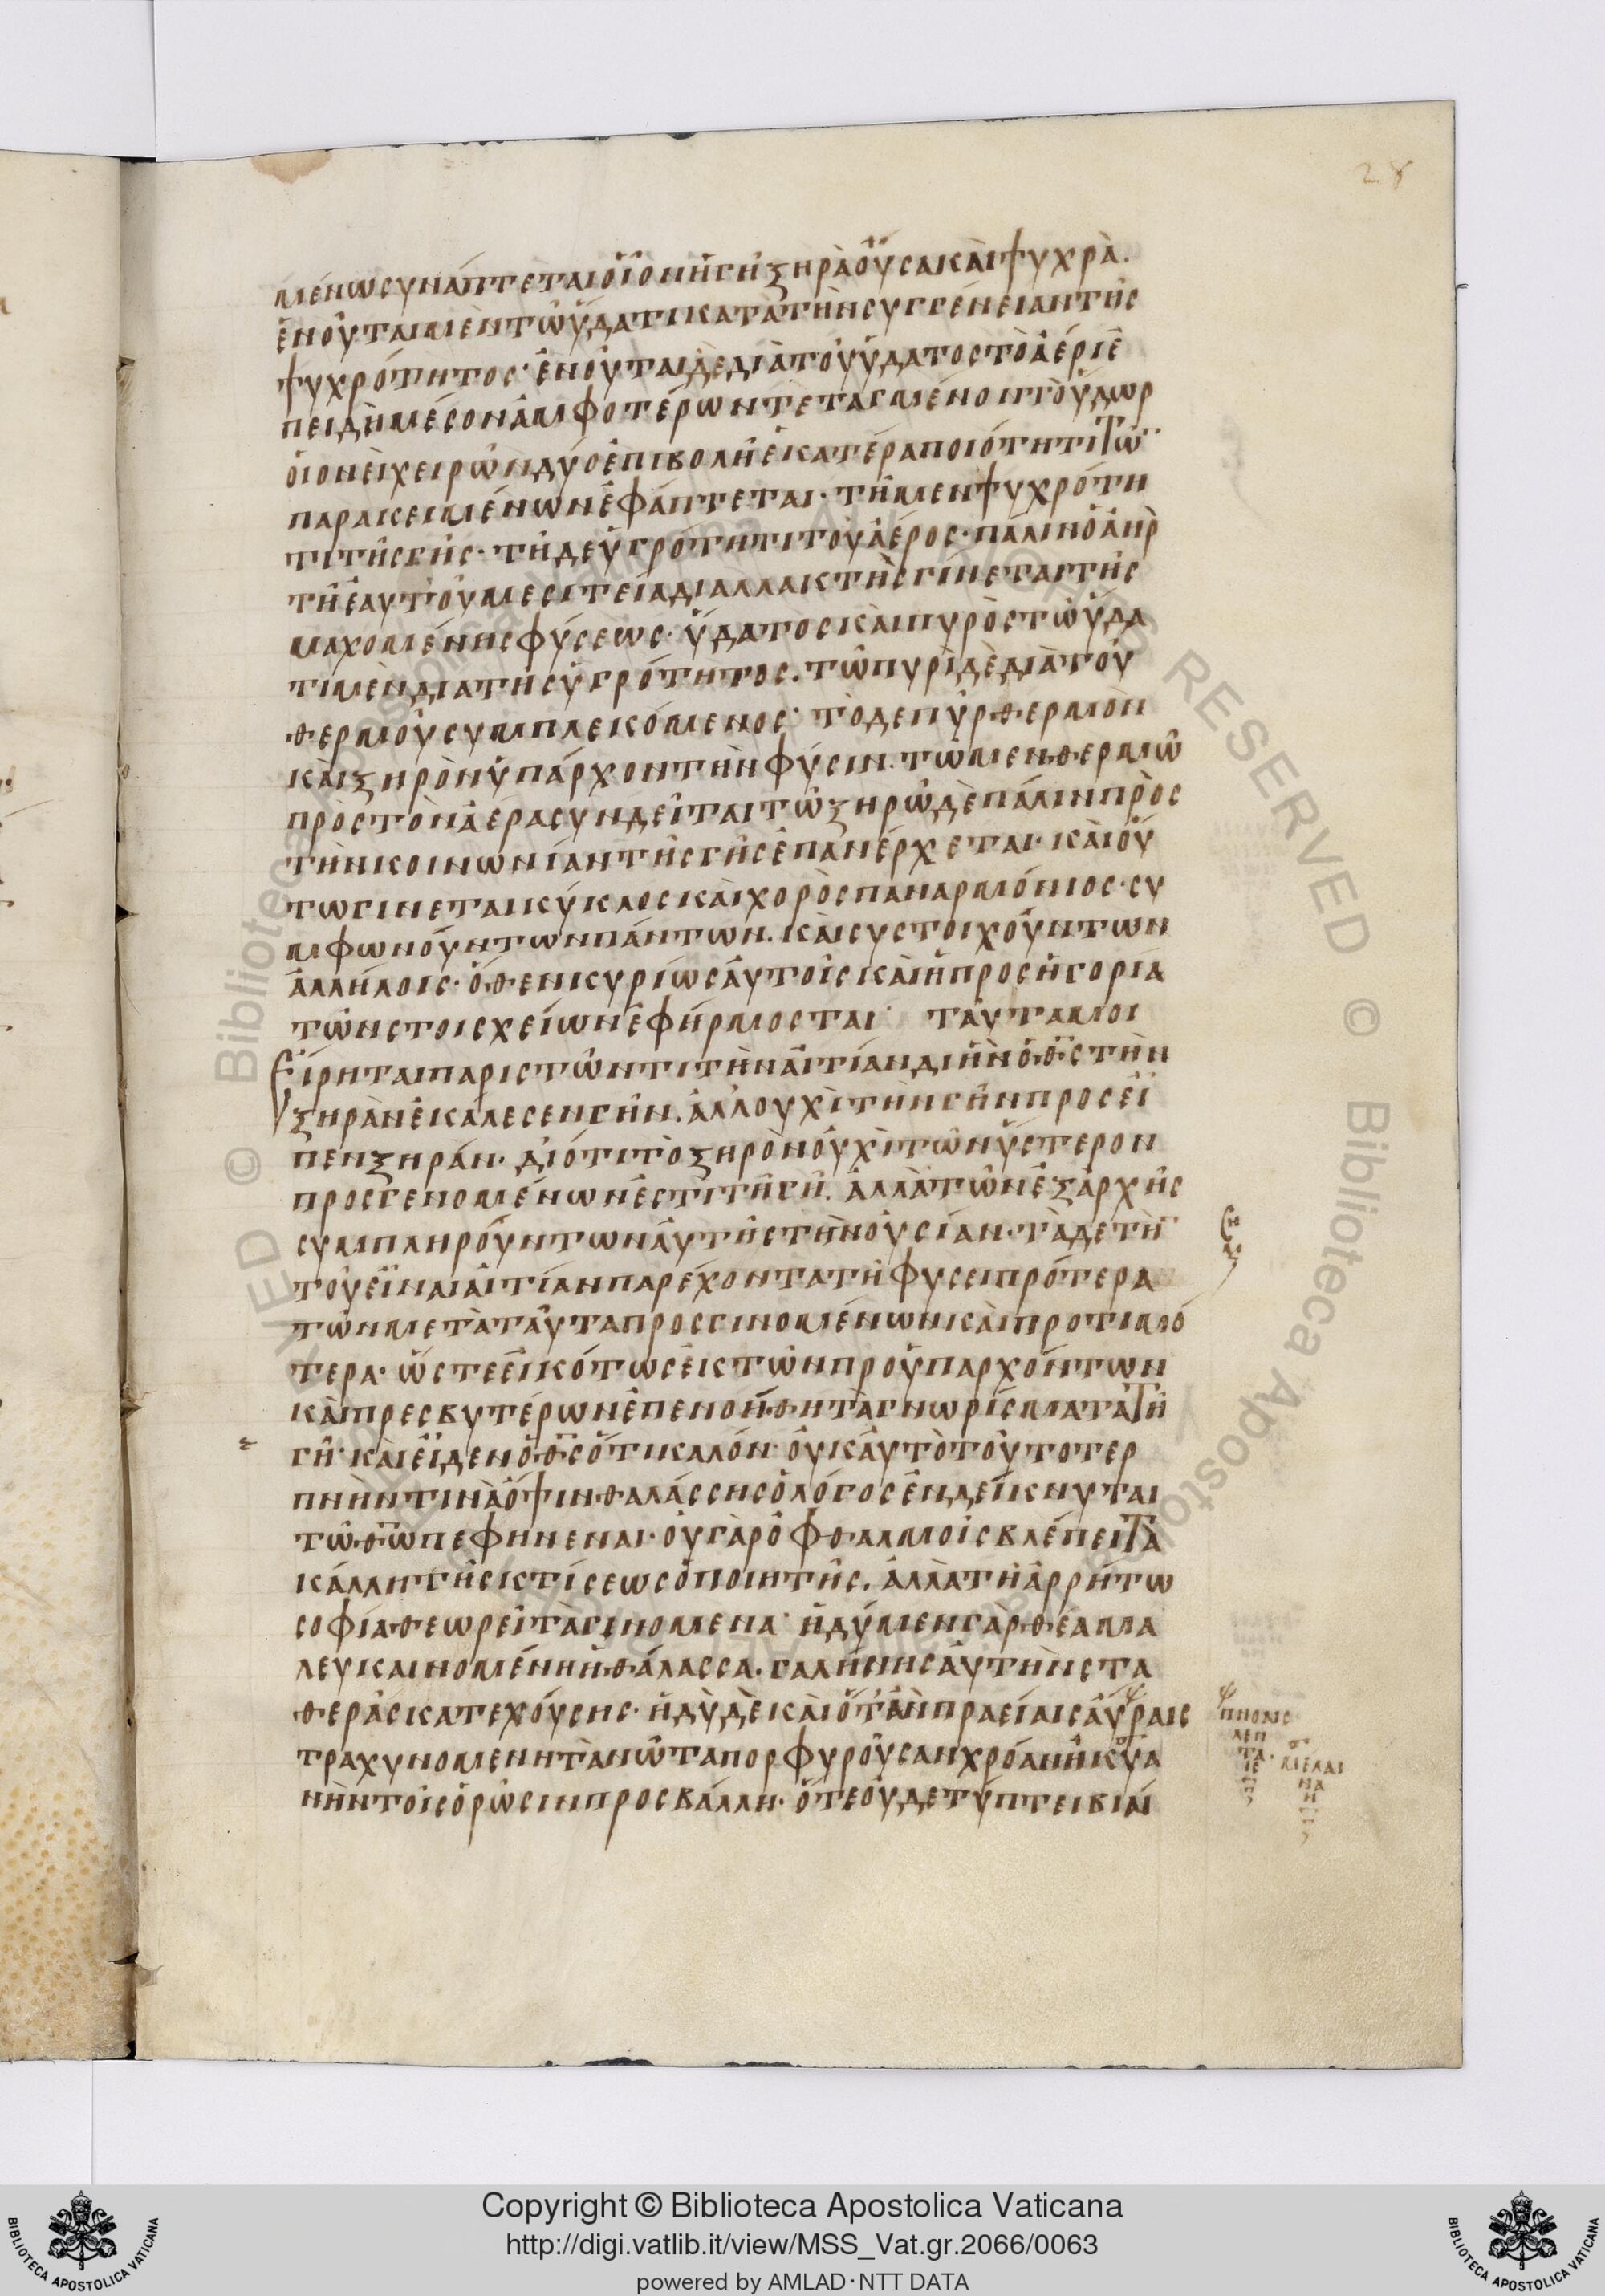 28
μένως συνάπτεται οἷον ἡ γῆ ξηρὰ οὖσα καὶ ψυχρὰ.
ἑνοῦται μὲν τῶ ὕδατι κατὰ τὴν συγγένειαν τῆς
ψυχρότητος· ἑνοῦται δὲ διὰ τοῦ ὕδατος τὸ ἀέρι ἐ
πειδὴ μέσον ἀμφοτέρων τεταγμένον τὸ ὕδωρ
οἱονεὶ χειρῶν δύο ἐπιβολῆ ἑκατέρα ποιότητι τῶ
παρακειμένων ἐφάπτεται· τῆ μεν ψυχρότη
τι τῆς γῆς· τῆ δε ὑγρότητι τοῦ ἀέρος· πάλιν ὁ ἀὴρ
τῆ ἑαυτοῦ μεσιτεία διαλλακτὴς γίνεται τῆς
μαχομένης φύσεως· ὕδατος καὶ πυρὸς τῶ ὕδα
τι μὲν δια τῆς ὑγρότητος. τῶ πυρὶ δὲ διὰ τοῦ
θερμοῦ συμπλεκόμενος· τὸ δε πῦρ θερμὸν
καὶ ξηρὸν ὑπάρχον τὴν φύσιν. τῶ μεν θερμῶ
πρὸς τὸν ἀέρα συνδεῖται τῶ ξηρῶ δὲ πάλιν πρὸς
τὴν κοινωνίαν τῆς γῆς ἐπανέρχεται· καὶ οὕ
τω γινεται κύκλος καὶ χορὸς παναρμόνιος· συ
μφωνούντων πάντων. καὶ συστοιχούντων
ἀλλήλοις· ὅθεν κυρίως αὐτοῖς καὶ ἡ προσηγορία
τῶν στοισχείων ἐφήρμοσται· ταῦτα μοι
εἴρηται παριστῶντι τὴν αἰτίαν δι ἣν ὁ θς τὴν
ξηρὰν ἐκάλεσεν γῆν. ἀλλ ουχὶ τὴν γῆν προσεῖ
πεν ξηράν. διότι τὸ ξηρὸν οὐχὶ τῶν ὕστερον
προσγενομένων ἐστὶ τῆ γῆ. ἀλλὰ τῶν ἐξ ἀρχῆς
συμπληρούντων αὐτῆς τὴν οὐσίαν· τὰ δε τὴ
τοῦ εἶναι αἰτίαν παρέχοντα τῆ φυσει πρότερα
τῶν μετὰ ταῦτα προσγινομένων καὶ προτιμό
τερα· ὥστε εἰκότως ἐκ τῶν προϋπαρχόντων
καὶ πρεσβυτέρων ἐπενοήθη τὰ γνωρίσματα τῆ
γῆ· καὶ εἶδεν ὁ θς ὅτι καλόν· οὐκ αὐτὸ τοῦτο τερ
πνήν τινα ὄψιν θαλάσσης ὁ λόγος ἐνδείκνυται
τῶ θῶ πεφηνεναι· οὐ γὰρ ὀφθαλμοῖς βλέπει τὰ
κάλλη τῆς κτίσεως ὁ ποιητὴς. ἀλλὰ τῆ ἀρρήτω
σοφία θεωρεῖ τὰ γινομενα· ἡδύ μεν γὰρ θέαμα
λευκαινομένη ἡ θάλασσα. γαλήνης αὐτὴν στα
θερᾶς κατεχούσης· ἡδὺ δὲ καὶ ὅτ ἂν πραείαις αὔραις
τραχυνομενη τὰ νῶτα πορφυροῦσαν χρόαν ἢ κυα
νῆν τοῖς ὁρῶσιν προσβάλλη· ὅτε οὐδε τύπτει βιαί
πνοαῖς
λεπ
ταῖς
μέλαι
ναν
Copyright © Biblioteca Apostolica Vaticana
http://digi.vatlib.it/view/MSS_Vat.gr.2066/0063
powered by AMLAD·NTT DATA